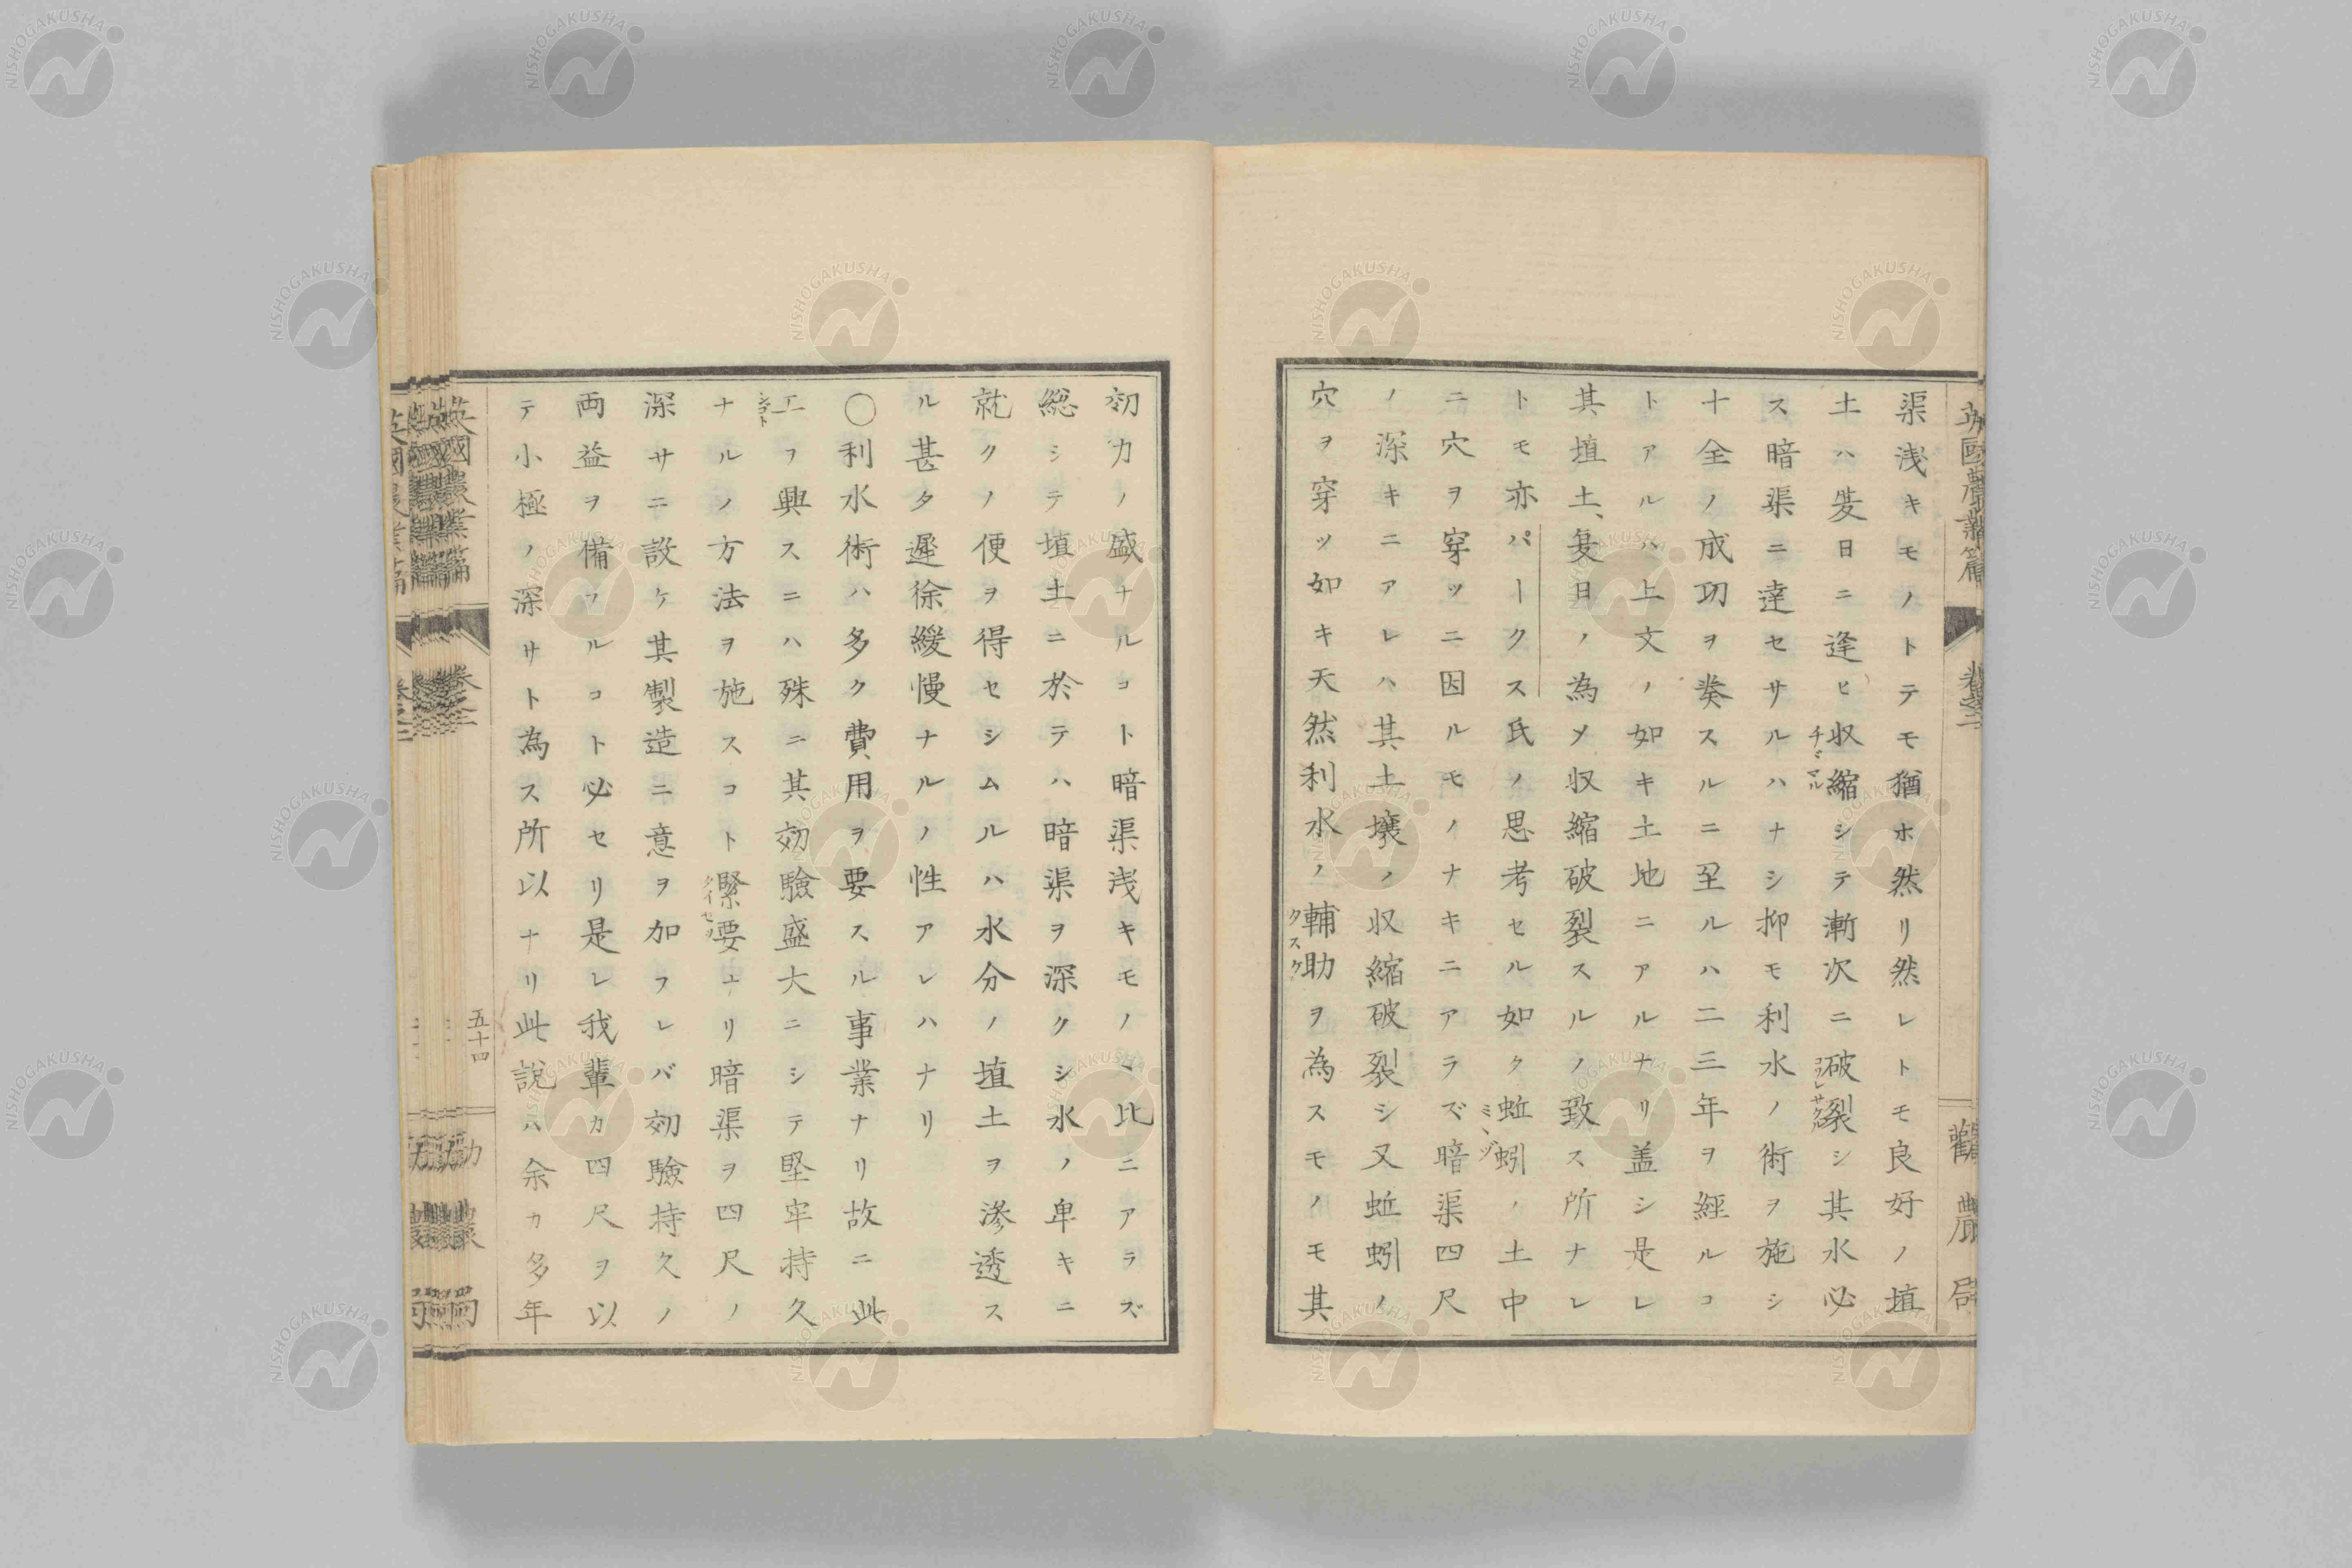 渠浅キモノトテモ猶ホ然リ然レトモ良好ノ埴
土ハ夐日ニ逢ヒ収縮シテ漸次ニ破裂シ其水必
チヾマル
コワレサクル
ス暗渠ニ達セサルハナシ抑モ利水ノ術ヲ施シ
十全ノ成功ヲ奏スルニ至ルハ二三年ヲ經ルコ
トアルハ上文ノ如キ土地ニアルナリ盖シ是レ
其埴土、夐日ノ為メ収縮破裂スルノ致ス所ナレ
トモ亦パークス氏ノ思考セル如ク蚯蚓ノ土中
ミヽヅ
ニ穴ヲ穿ツニ因ルモノナキニアラズ暗渠四尺
ノ深キニアレハ其土壌ノ収縮破裂シ又蚯蚓ノ
穴ヲ穿ツ如キ天然利水ノ輔助ヲ為スモノモ其
タスケ
卷之二
勸農局
効力ノ盛ナルコト暗渠浅キモノヽ比ニアラズ
総シテ埴土ニ於テハ暗渠ヲ深クシ水ノ卑キニ
就クノ便ヲ得セシムルハ水分ノ埴土ヲ滲透ス
ル甚タ遲徐緩慢ナルノ性アレハナリ
〇利水術ハ多ク費用ヲ要スル事業ナリ故ニ此
工ヲ興スニハ殊ニ其効驗盛大ニシテ堅牢持久
シゴト
ナルノ方法ヲ施スコト緊要ナリ暗渠ヲ四尺ノ
タイセツ
深サニ設ケ其製造ニ意ヲ加フレバ効驗持久ノ
両益ヲ備フルコト必セリ是レ我輩カ四尺ヲ以
テ小極ノ深サト為ス所以ナリ此説ハ余カ多年
英國農業篇
卷之二
五十四
勸農局
NISHOGAKUSHA